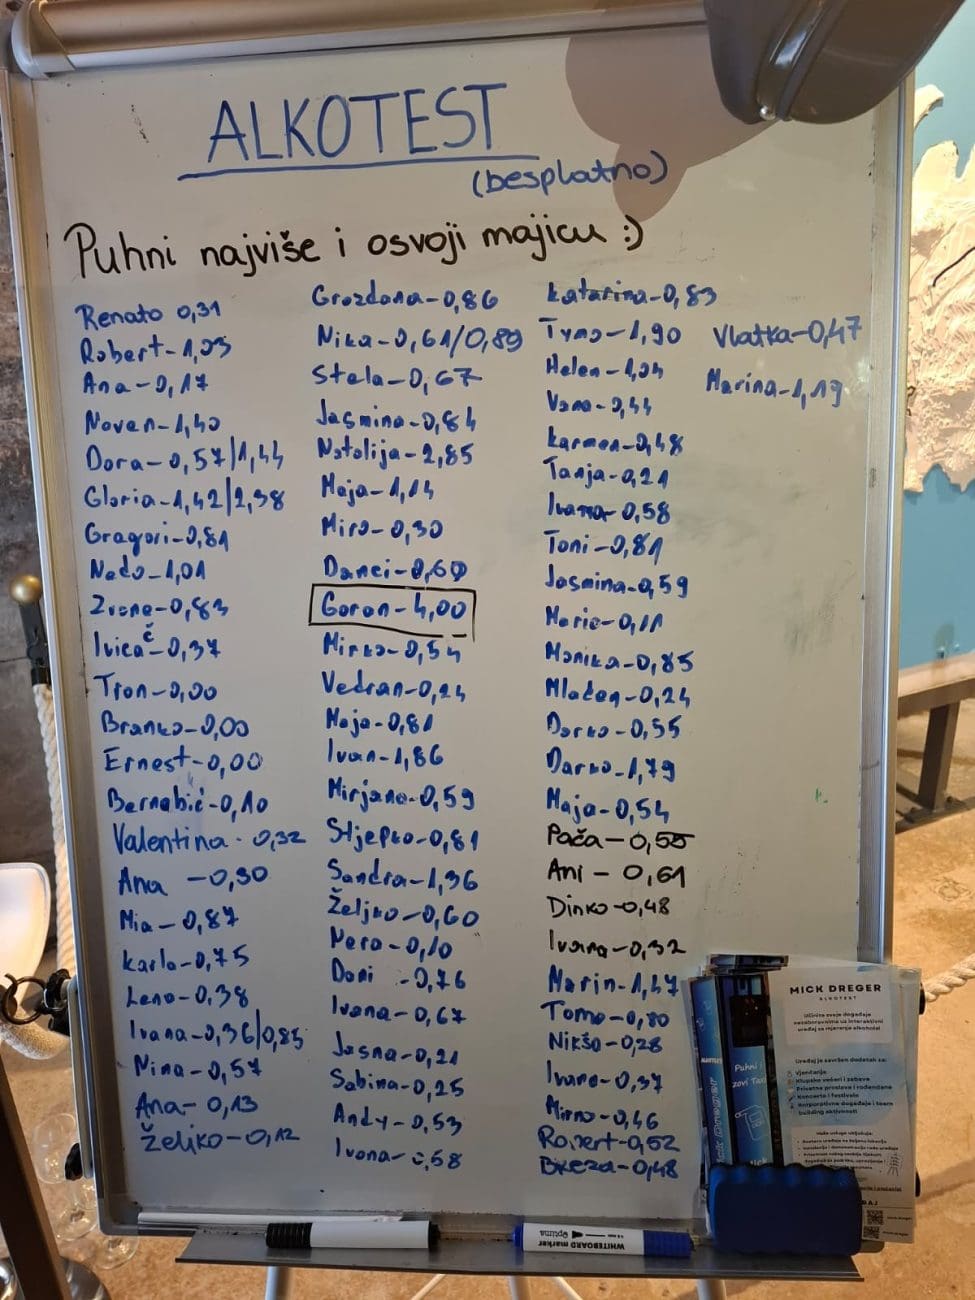 ALKOTEST
(besplatno)
Puhni najviše i osvoji majicu :)
Renato 0,31
Robert-1,03
Ana-0,17
Noven-1,40
Dora-0,57/1,44
Gloria-1,42/2,38
Gragori-0,81
Nedo-1,01
Zvone-0,83
Ivica-0,37
Tron-0,00
Branko-0,00
Ernest-0,00
Bernabić-0,10
Valentina-0,32
Ana-0,30
Mia-0,87
Karlo-0,75
Leno-0,38
Ivana-0,36/0,85
Nina-0,57
Ana-0,13
Željko-0,12
Grozdana-0,86
Nika-0,61/0,89
Stela-0,67
Jasmina-0,84
Natalija-2,85
Maja-1,14
Miro-0,30
Danci-0,60
Goran-4,00
Mirko-0,54
Vedran-0,24
Maja-0,81
Ivan-1,86
Mirjana-0,59
Stjepko-0,81
Sandra-1,36
Željko-0,60
Nera-0,10
Doni-0,76
Ivana-0,67
Jasna-0,21
Sabina-0,25
Andy-0,53
Ivona-0,58
Katarina-0,83
Tymo-1,90
Helen-1,04
Vana-0,44
Karmen-0,48
Tanja-0,21
Ivana-0,58
Toni-0,81
Jasmina-0,59
Mario-0,11
Monika-0,85
Mladen-0,24
Darko-0,55
Darko-1,79
Maja-0,54
Pača-0,55
Ani-0,61
Dinko-0,48
Ivana-0,32
Marin-1,47
Tomo-0,80
Nikša-0,28
Ivano-0,37
Mirno-0,46
Robert-0,52
Breza-0,48
Vlatka-0,47
Marina-1,19
MICK DREGER
ALKOTEST
Učinite svoje događaje
nezaboravnima uz interaktivni
uređaj za mjerenje alkohola!
Uređaj je savršen dodatak za:
Vjenčanja
Klupske večeri i zabave
Privatne proslave i rođendane
Koncerte i festivale
Korporativne događaje i team
building aktivnosti
Puhni i
zovi Taxi
WHITEBOARD
marker
optima